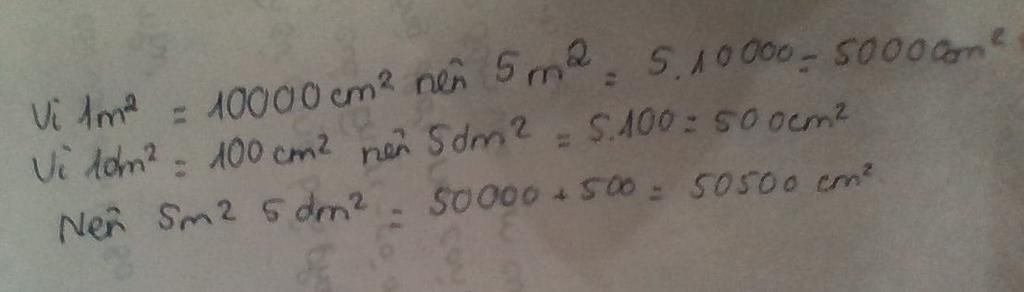 Vì 1m² = 10000cm² nên 5m² = 5.10000 = 50000cm²
Vì 1dm² = 100cm² nên 5dm² = 5.100 = 500cm²
Nên 5m2 5dm² = 50000 + 500 = 50500 cm²